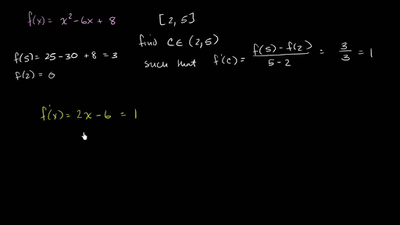 f(x) = x² - 6x + 8 [2, 5]
find c ∈ (2, 5)
such that f'(c) = (f(5) - f(2))/(5 - 2) = 3/3 = 1
f(5) = 25 - 30 + 8 = 3
f(2) = 0
f'(x) = 2x - 6 = 1